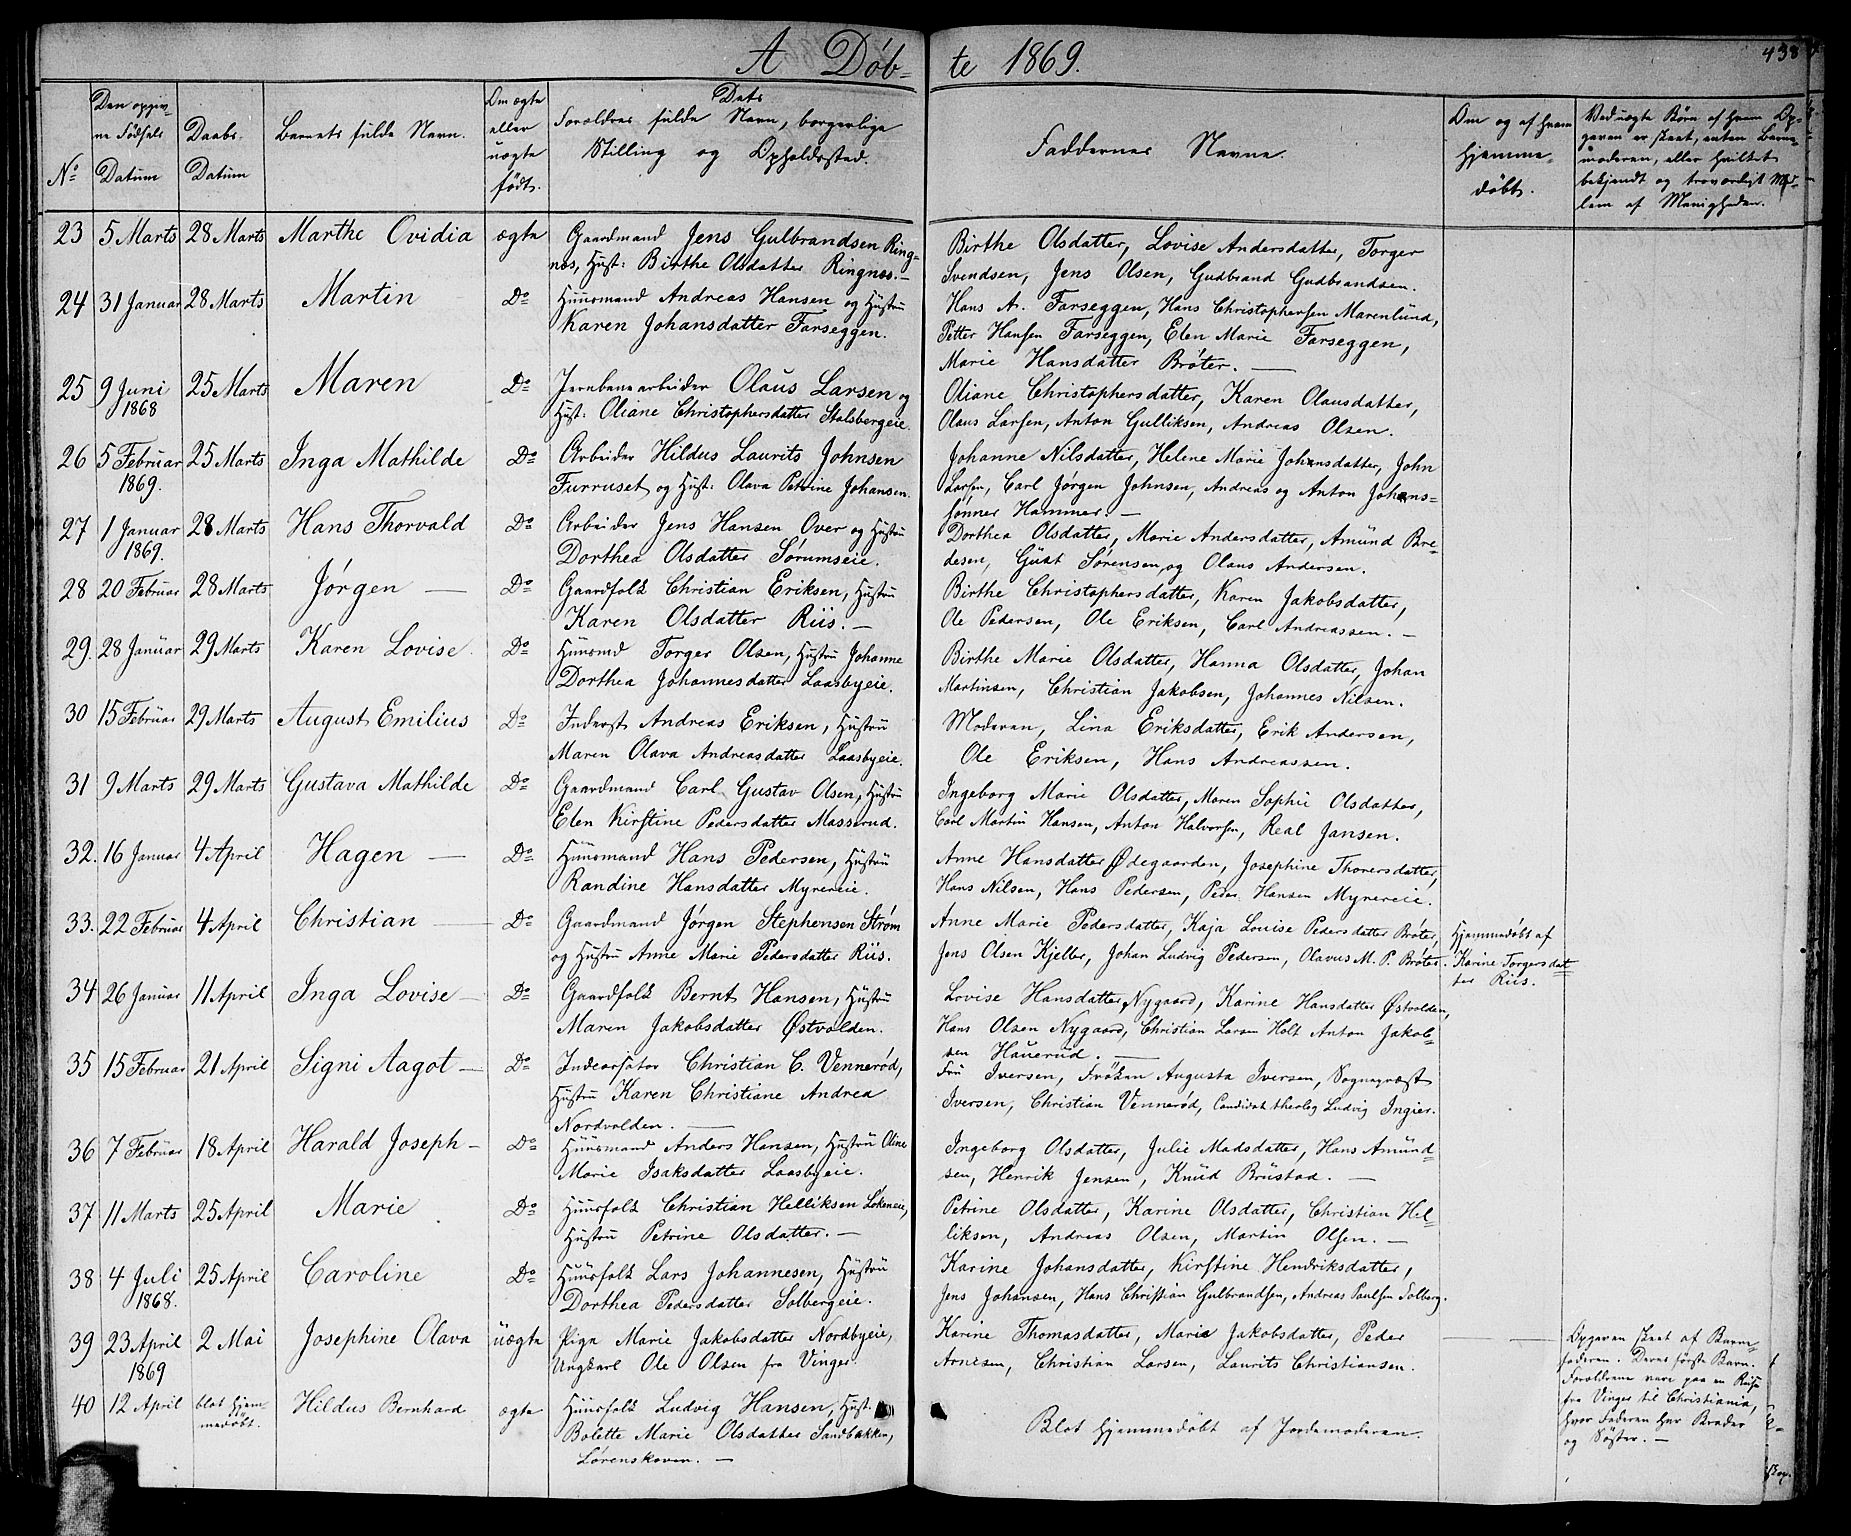 A Døbte 1869.
438
No
Den opgivne Fødsels Datum
Daabs Datum
Barnets fulde Navn.
Om ægte eller uægte født.
Dets Forældres fulde Navn, borgerlige Stilling og Opholdssted.
Faddernes Navne.
Om og af hvem hjemmedøbt.
Ved uægte Børn af hvem Opgaven er skeet, enten Barnemoderen, eller hvilket bekjendt og troværdigt Medlem af Menigheden.
23 5 Marts 28 Marts Marthe Ovidia ægte Gaardmand Jens Gulbrandsen Ring-
næs, Hust: Birthe Olsdatter Ringnæs.—
Birthe Olsdatter, Lovise Andersdatter, Torger
Svendsen, Jens Olsen, Gudbrand Gudbrandsen.
24 31 Januar 28 Marts Martin Do Huusmand Andreas Hansen og Hustru
Karen Johansdatter Farseggen.
Hans A. Farseggen, Hans Christophersen Marenlund,
Petter Hansen Farseggen, Elen Marie Farseggen,
Marie Hansdatter Brøter. —
25 9 Juni 1868 25 Marts Maren Do Jernbanearbeider Olaus Larsen og
Hust: Oliane Christophersdatter Stalsbergeie.
Oliane Christophersdatter, Karen Olausdatter,
Olaus Larsen, Anton Gulliksen, Andreas Olsen.
26 5 Februar 1869. 25 Marts Inga Mathilde Do Arbeider Hildus Laurits Johnsen
Furruset og Hust: Olava Petrine Johansen.
Johanne Nilsdatter, Helene Marie Johansdatter, John
Larsen, Carl Jørgen Johnsen, Andreas og Anton Johans-
sønner Hammer. —
27 1 Januar 1869. 28 Marts Hans Thorvald Do Arbeider Jens Hansen Over og Hustru
Dorthea Olsdatter Sørumseie.
Dorthea Olsdatter, Marie Andersdatter, Amund Bre-
desen, Gust Sørensen, og Olaus Andersen.
28 20 Februar 28 Marts Jørgen — Do Gaardfolk Christian Eriksen, Hustru
Karen Olsdatter Riis. —
Birthe Christophersdatter, Karen Jakobsdatter,
Ole Pedersen, Ole Eriksen, Carl Andreassen. —
29. 28 Januar 29 Marts Karen Lovise Do Huusmd Torger Olsen, Hustru Johanne
Dorthea Johannesdatter Laasbyeie.
Birthe Marie Olsdatter, Hanna Olsdatter, Johan
Martinsen, Christian Jakobsen, Johannes Nilsen.
30 15 Februar 29 Marts August Emilius Do Inderst Andreas Eriksen, Hustru
Maren Olava Andreasdatter Laasbyeie.
Moderen, Lina Eriksdatter, Erik Andersen,
Ole Eriksen, Hans Andreassen.
31 9 Marts 29 Marts Gustava Mathilde Do Gaardmand Carl Gustav Olsen, Hustru
Elen Kirstine Pedersdatter Masserud.
Ingeborg Marie Olsdatter, Maren Sophie Olsdatter,
Carl Martin Hansen, Anton Halvorsen, Real Jansen.
32. 16 Januar 4 April Hagen — Do Huusmand Hans Pedersen, Hustru
Randine Hansdatter Myrereie.
Anne Hansdatter Ødegaarden, Josephine Thorersdatter,
Hans Nilsen, Hans Pedersen, Peder Hansen Myrereie.
33. 22 Februar 4 April Christian — Do Gaardmand Jørgen Stephensen Strøm
og Hustru Anne Marie Pedersdatter Riis.
Anne Marie Pedersdatter, Kaja Louise Pedersdatter Brøter,
Jens Olsen Kjeller, Johan Ludvig Pedersen, Olavus M. P. Brøter.
Hjemmedøbt af
Karine Torgersdat-
ter Riis.
34 26 Januar 11 April Inga Lovise — Do Gaardfolk Bernt Hansen, Hustru
Maren Jakobsdatter Østvolden.
Lovise Hansdatter Nygaard, Karine Hansdatter Østvolden,
Hans Olsen Nygaard, Christian Larsen Holt Anton Jakob-
sen Hauerud. —
35 15 Februar 21 April Signi Aagot — Do Indecorsator Christian C. Vennerød,
Hustru Karen Christiane Andrea
Nordvolden. —
Fru Iversen, Frøken Augusta Iversen, Sognepræst
Iversen, Christian Vennerød, Candidat theolog Ludvig Ingier.
36 7 Februar 18 April Harald Joseph — Do Huusmand Anders Hansen, Hustru Oline
Marie Isaksdatter Laasbyeie.
Ingeborg Olsdatter, Julie Madsdatter, Hans Amund-
sen, Henrik Jensen, Knud Brustad. —
37 11 Marts 25 April Marie Do Huusfolk Christian Helliksen Løkeneie,
Hustru Petrine Olsdatter. —
Petrine Olsdatter, Karine Olsdatter, Christian Hel-
liksen, Andreas Olsen, Martin Olsen. —
38 4 Juli 1868. 25 April Caroline Do Huusfolk Lars Johannesen, Hustru
Dorthea Pedersdatter Solbergeie.
Karine Johansdatter, Kirstine Hendriksdatter,
Jens Johansen, Hans Christian Gulbrandsen, Andreas Paulsen Solberg.
39 23 April 1869 2 Mai Josephine Olava uægte Pige Marie Jakobsdatter Nordbyeie,
Ungkarl Ole Olsen fra Vinger.
Karine Thomasdatter, Marie Jakobsdatter, Peder
Arnesen, Christian Larsen, Laurits Christiansen.
Opgaven skeet af Barne-
faderen. Deres første Barn.
Forældrene vare paa en Reise
fra Vinger til Christiania,
hvor Faderen har Brøder
og Søster. —
40 12 April blot hjem-
medøbt. Hildus Bernhard ægte Huusfolk Ludvig Hansen, Hust.
Bolette Marie Olsdatter Sandbækken,
Lørenskoven. —
Blot hjemmedøbt af Jordemoderen.